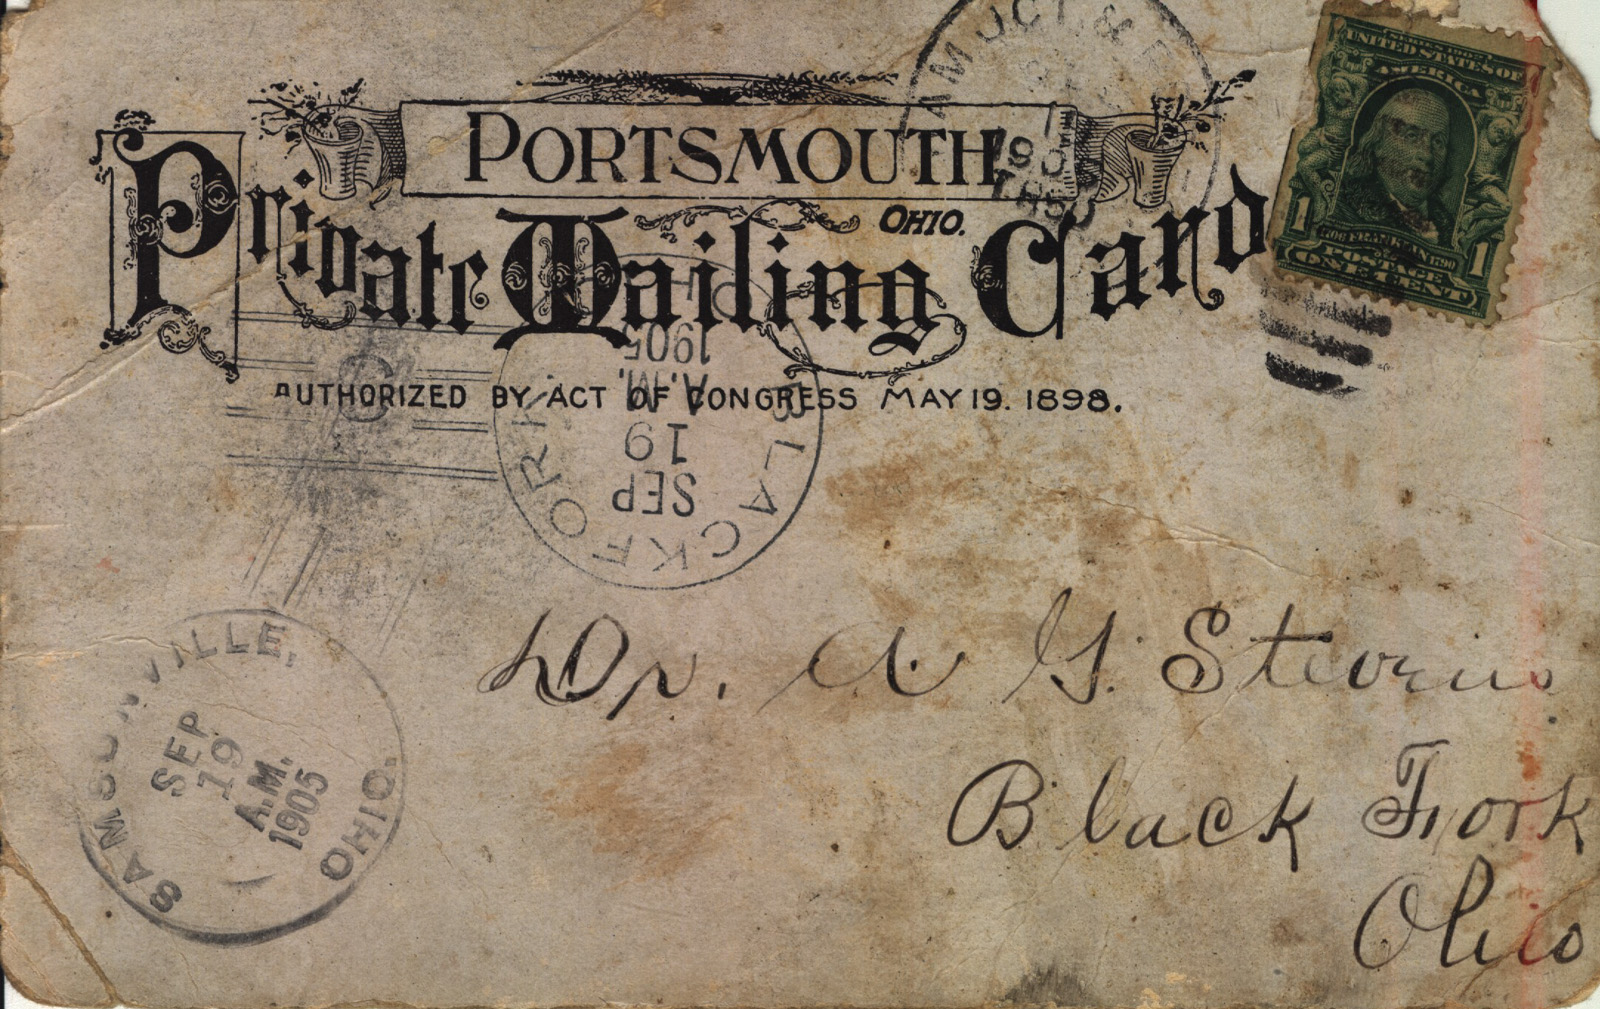 PORTSMOUTH
OHIO.
Private Mailing Card
AUTHORIZED BY ACT OF CONGRESS MAY 19. 1898.
SERIES 1902
UNITED STATES OF
AMERICA
1 1
FRANKLIN 1790
POSTAGE
ONE CENT
HAM JCT. &
190
BLACKFORK
SEP
19
A.M.
1905
SAMSONVILLE, OHIO.
SEP
19
A.M.
1905
Dr. A G. Stevens.
Black Fork
Ohio